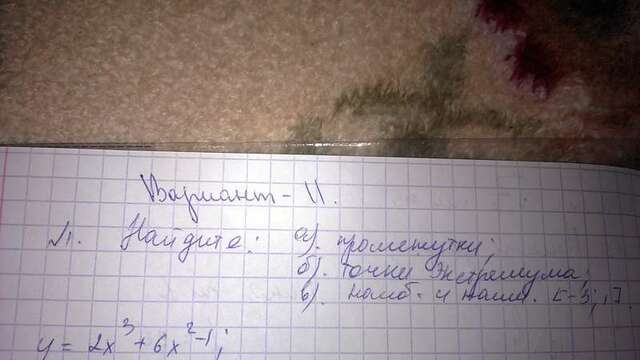 Вариант - II.
№1. Найдите: а). промежутки;
б). точки экстремума;
в). наиб. и наим. [-3; ].
y = 2x³ + 6x² - 1;